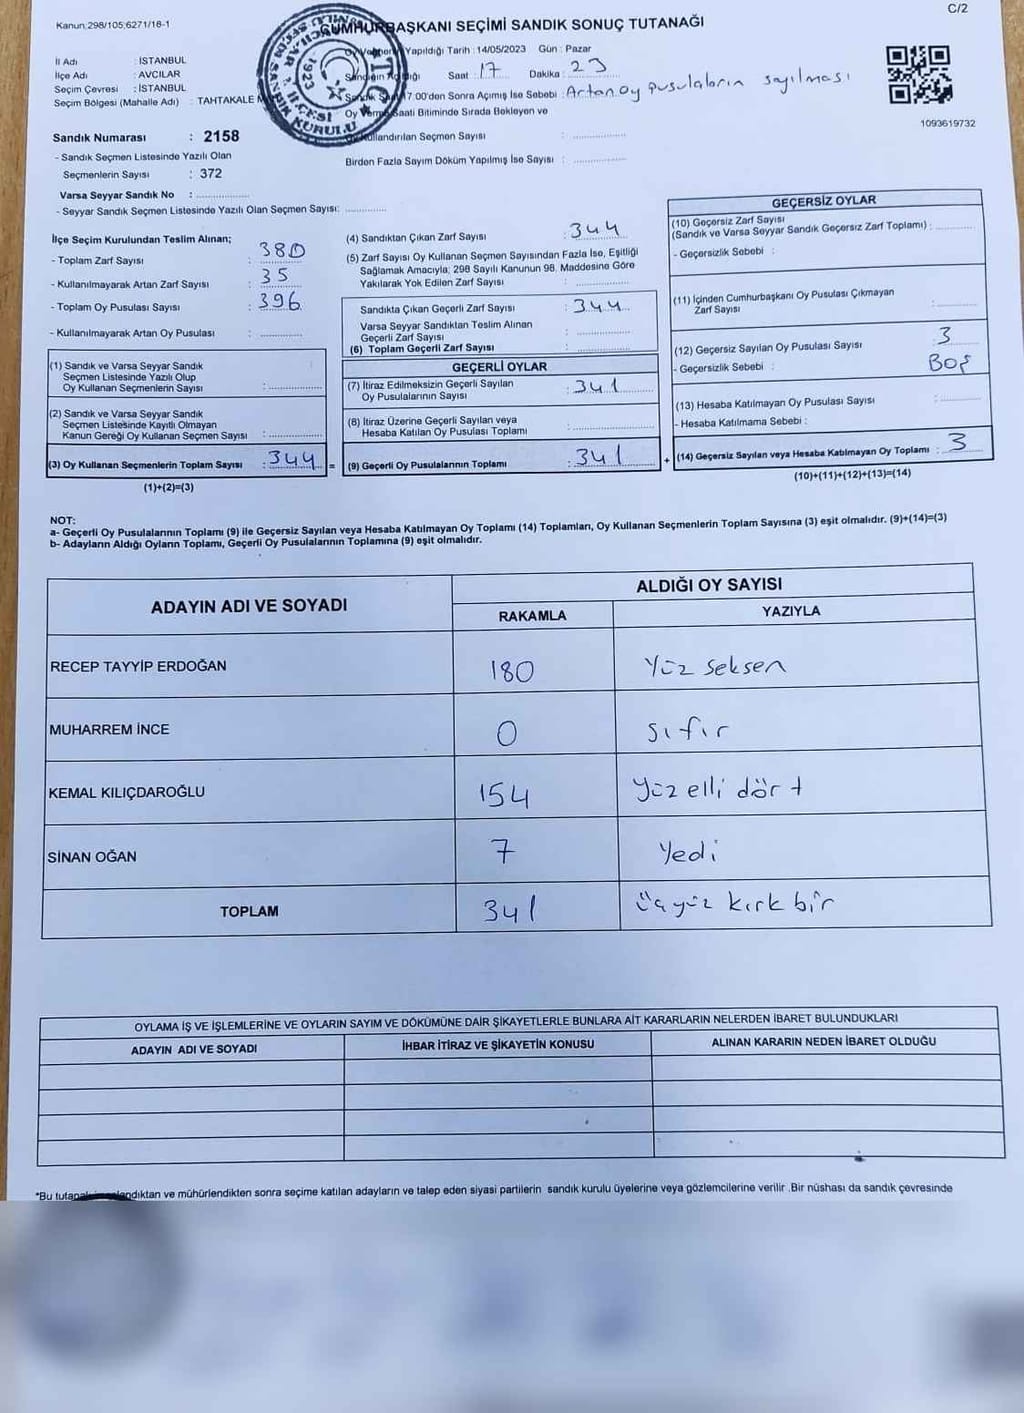 C/2
Kanun,298/105;6271/18-1
CUMHURBAŞKANI SEÇİMİ SANDIK SONUÇ TUTANAĞI
İl Adı : İSTANBUL
İlçe Adı : AVCILAR
Seçim Çevresi : İSTANBUL
Seçim Bölgesi (Mahalle Adı) : TAHTAKALE
Yapıldığı Tarih : 14/05/2023 Gün : Pazar
Saat : 17 Dakika : 23
17.00'den Sonra Açımış İse Sebebi : Artan oy pusulaların sayılması
Saati Bitiminde Sırada Bekleyen ve
Kullandırılan Seçmen Sayısı :
Birden Fazla Sayım Döküm Yapılmış İse Sayısı :
1093619732
Sandık Numarası : 2158
- Sandık Seçmen Listesinde Yazılı Olan
Seçmenlerin Sayısı : 372
Varsa Seyyar Sandık No :
- Seyyar Sandık Seçmen Listesinde Yazılı Olan Seçmen Sayısı:
İlçe Seçim Kurulundan Teslim Alınan;
- Toplam Zarf Sayısı : 380
- Kullanılmayarak Artan Zarf Sayısı : 35
- Toplam Oy Pusulası Sayısı : 396
- Kullanılmayarak Artan Oy Pusulası :
(1) Sandık ve Varsa Seyyar Sandık
Seçmen Listesinde Yazılı Olup
Oy Kullanan Seçmenlerin Sayısı :
(2) Sandık ve Varsa Seyyar Sandık
Seçmen Listesinde Kayıtlı Olmayan
Kanun Gereği Oy Kullanan Seçmen Sayısı :
(3) Oy Kullanan Seçmenlerin Toplam Sayısı : 344 =
(1)+(2)=(3)
(4) Sandıktan Çıkan Zarf Sayısı : 344
(5) Zarf Sayısı Oy Kullanan Seçmen Sayısından Fazla İse, Eşitliği
Sağlamak Amacıyla; 298 Sayılı Kanunun 98. Maddesine Göre
Yakılarak Yok Edilen Zarf Sayısı :
Sandıkta Çıkan Geçerli Zarf Sayısı : 344
Varsa Seyyar Sandıktan Teslim Alınan
Geçerli Zarf Sayısı :
(6) Toplam Geçerli Zarf Sayısı :
GEÇERLİ OYLAR
(7) İtiraz Edilmeksizin Geçerli Sayılan
Oy Pusulalarının Sayısı : 341
(8) İtiraz Üzerine Geçerli Sayılan veya
Hesaba Katılan Oy Pusulası Toplamı :
(9) Geçerli Oy Pusulalarının Toplamı : 341 +
GEÇERSİZ OYLAR
(10) Geçersiz Zarf Sayısı
(Sandık ve Varsa Seyyar Sandık Geçersiz Zarf Toplamı) :
- Geçersizlik Sebebi :
(11) İçinden Cumhurbaşkanı Oy Pusulası Çıkmayan
Zarf Sayısı :
(12) Geçersiz Sayılan Oy Pusulası Sayısı : 3
- Geçersizlik Sebebi : Boş
(13) Hesaba Katılmayan Oy Pusulası Sayısı :
- Hesaba Katılmama Sebebi :
(14) Geçersiz Sayılan veya Hesaba Katılmayan Oy Toplamı : 3
(10)+(11)+(12)+(13)=(14)
NOT:
a- Geçerli Oy Pusulalarının Toplamı (9) ile Geçersiz Sayılan veya Hesaba Katılmayan Oy Toplamı (14) Toplamları, Oy Kullanan Seçmenlerin Toplam Sayısına (3) eşit olmalıdır. (9)+(14)=(3)
b- Adayların Aldığı Oyların Toplamı, Geçerli Oy Pusulalarının Toplamına (9) eşit olmalıdır.
ADAYIN ADI VE SOYADI ALDIĞI OY SAYISI
RAKAMLA YAZIYLA
RECEP TAYYİP ERDOĞAN 180 Yüz seksen
MUHARREM İNCE 0 sıfır
KEMAL KILIÇDAROĞLU 154 yüz elli dört
SİNAN OĞAN 7 Yedi
TOPLAM 341 üçyüz kırk bir
OYLAMA İŞ VE İŞLEMLERİNE VE OYLARIN SAYIM VE DÖKÜMÜNE DAİR ŞİKAYETLERLE BUNLARA AİT KARARLARIN NELERDEN İBARET BULUNDUKLARI
ADAYIN ADI VE SOYADI İHBAR İTİRAZ VE ŞİKAYETİN KONUSU ALINAN KARARIN NEDEN İBARET OLDUĞU
*Bu ve mühürlendikten sonra seçime katılan adayların ve talep eden siyasi partilerin sandık kurulu üyelerine veya gözlemcilerine verilir .Bir nüshası da sandık çevresinde